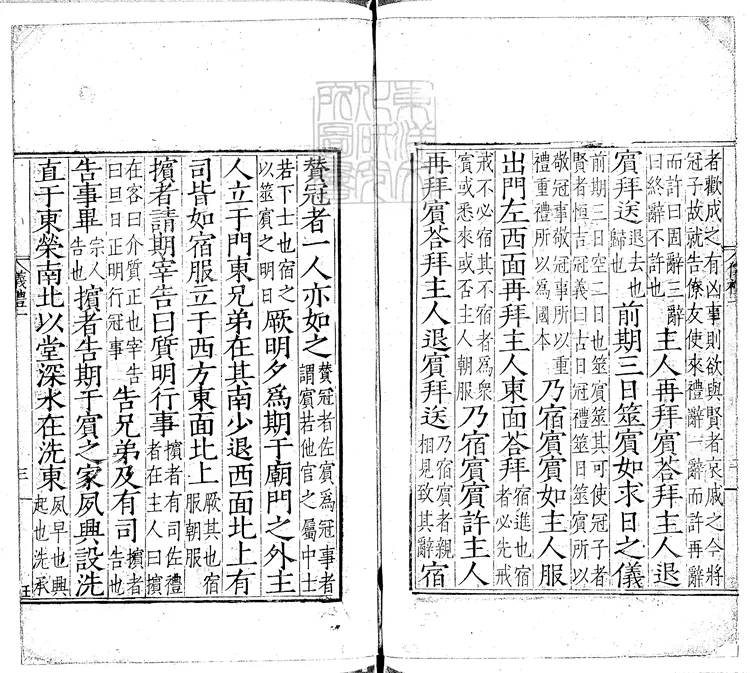 者歡成之有凶事則欲與賢者哀戚之今將冠子故就告僚友使來禮辭一辭而許再辭
而許曰固辭三辭曰終辭不許也主人再拜賓荅拜主人退
賓拜送退去也歸也前期三日筮賓如求日之儀
前期三日空二日也筮賓筮其可使冠子者賢者恒吉冠義曰古日冠禮筮日筮賓所以
敬冠事敬冠事所以重禮重禮所以爲國本乃宿賓賓如主人服
出門左西面再拜主人東面荅拜宿進也宿者必先戒
戒不必宿其不宿者爲衆賓或悉來或否主人朝服乃宿賓賓許主人
再拜賓荅拜主人退賓拜送乃宿賓者親相見致其辭宿
贊冠者一人亦如之贊冠者佐賓爲冠事者謂賓若他官之屬中士
若下士也宿之以筮賓之明日厥明夕爲期于廟門之外主
人立于門東兄弟在其南少退西面北上有
司皆如宿服立于西方東面北上厥其也宿服朝服
擯者請期宰告曰質明行事擯者有司佐禮者在主人曰擯
在客曰介質正也宰告曰旦日正明行冠事告兄弟及有司擯者告也
告事畢宗人告也擯者告期于賓之家夙興設洗
直于東榮南北以堂深水在洗東夙早也興起也洗承
儀禮一
三